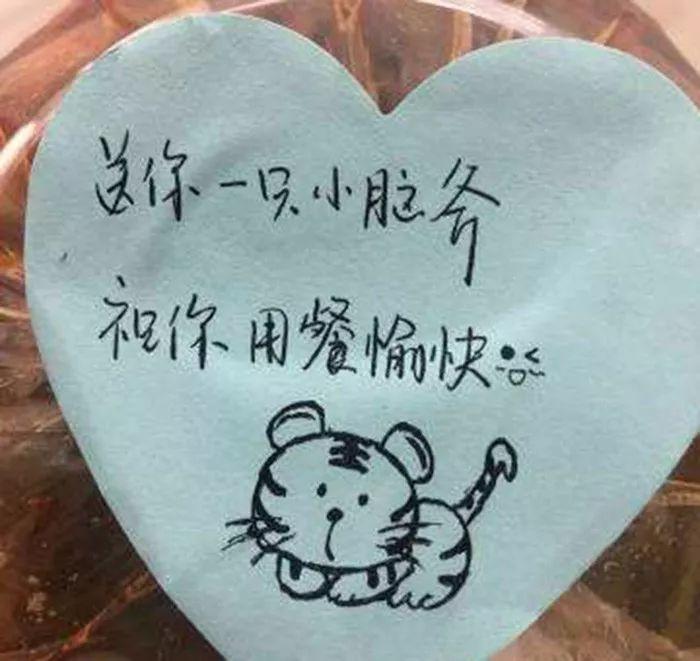 送你一只小脑斧
祝你用餐愉快